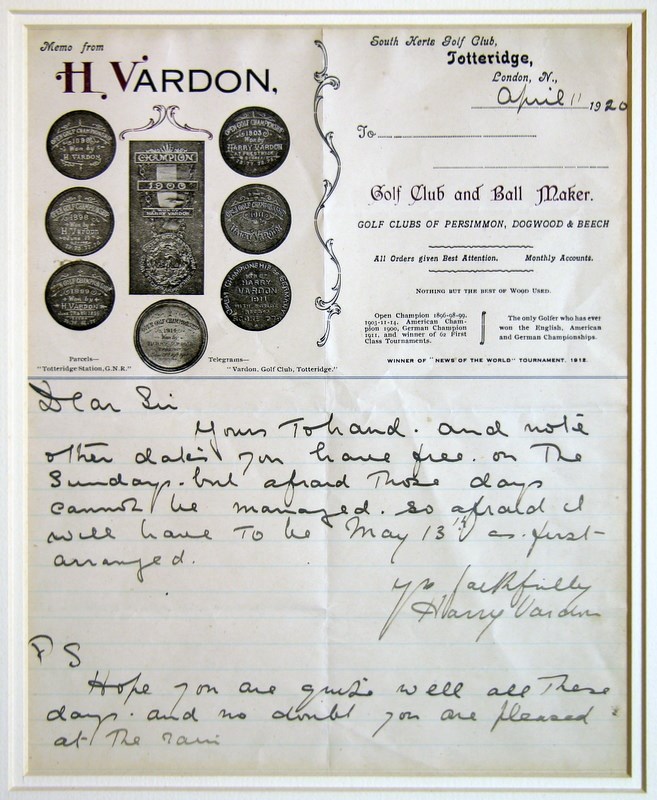 Memo from
H. VARDON,
South Herts Golf Club,
Totteridge,
London, N.,
April 11 1920
To
CHAMPION
1900
HARRY VARDON
Golf Club and Ball Maker.
GOLF CLUBS OF PERSIMMON, DOGWOOD & BEECH
All Orders given Best Attention. Monthly Accounts.
NOTHING BUT THE BEST OF WOOD USED.
Open Champion 1896-98-99,
1903-11-14, American Cham-
pion 1900, German Champion
1911, and winner of 62 First
Class Tournaments.
The only Golfer who has ever
won the English, American
and German Championships.
WINNER OF "NEWS OF THE WORLD" TOURNAMENT, 1912.
Parcels—
"Totteridge Station, G.N.R."
Telegrams—
"Vardon, Golf Club, Totteridge."
Dear Sir
Yours To hand. and note
other dates you have free. on The
Sundays. but afraid Those days
cannot be managed. so afraid it
will have To be May 13th as. first
arranged.
yrs faithfully
Harry Vardon
P S
Hope you are quite well all These
days. and no doubt you are pleased
at The rain